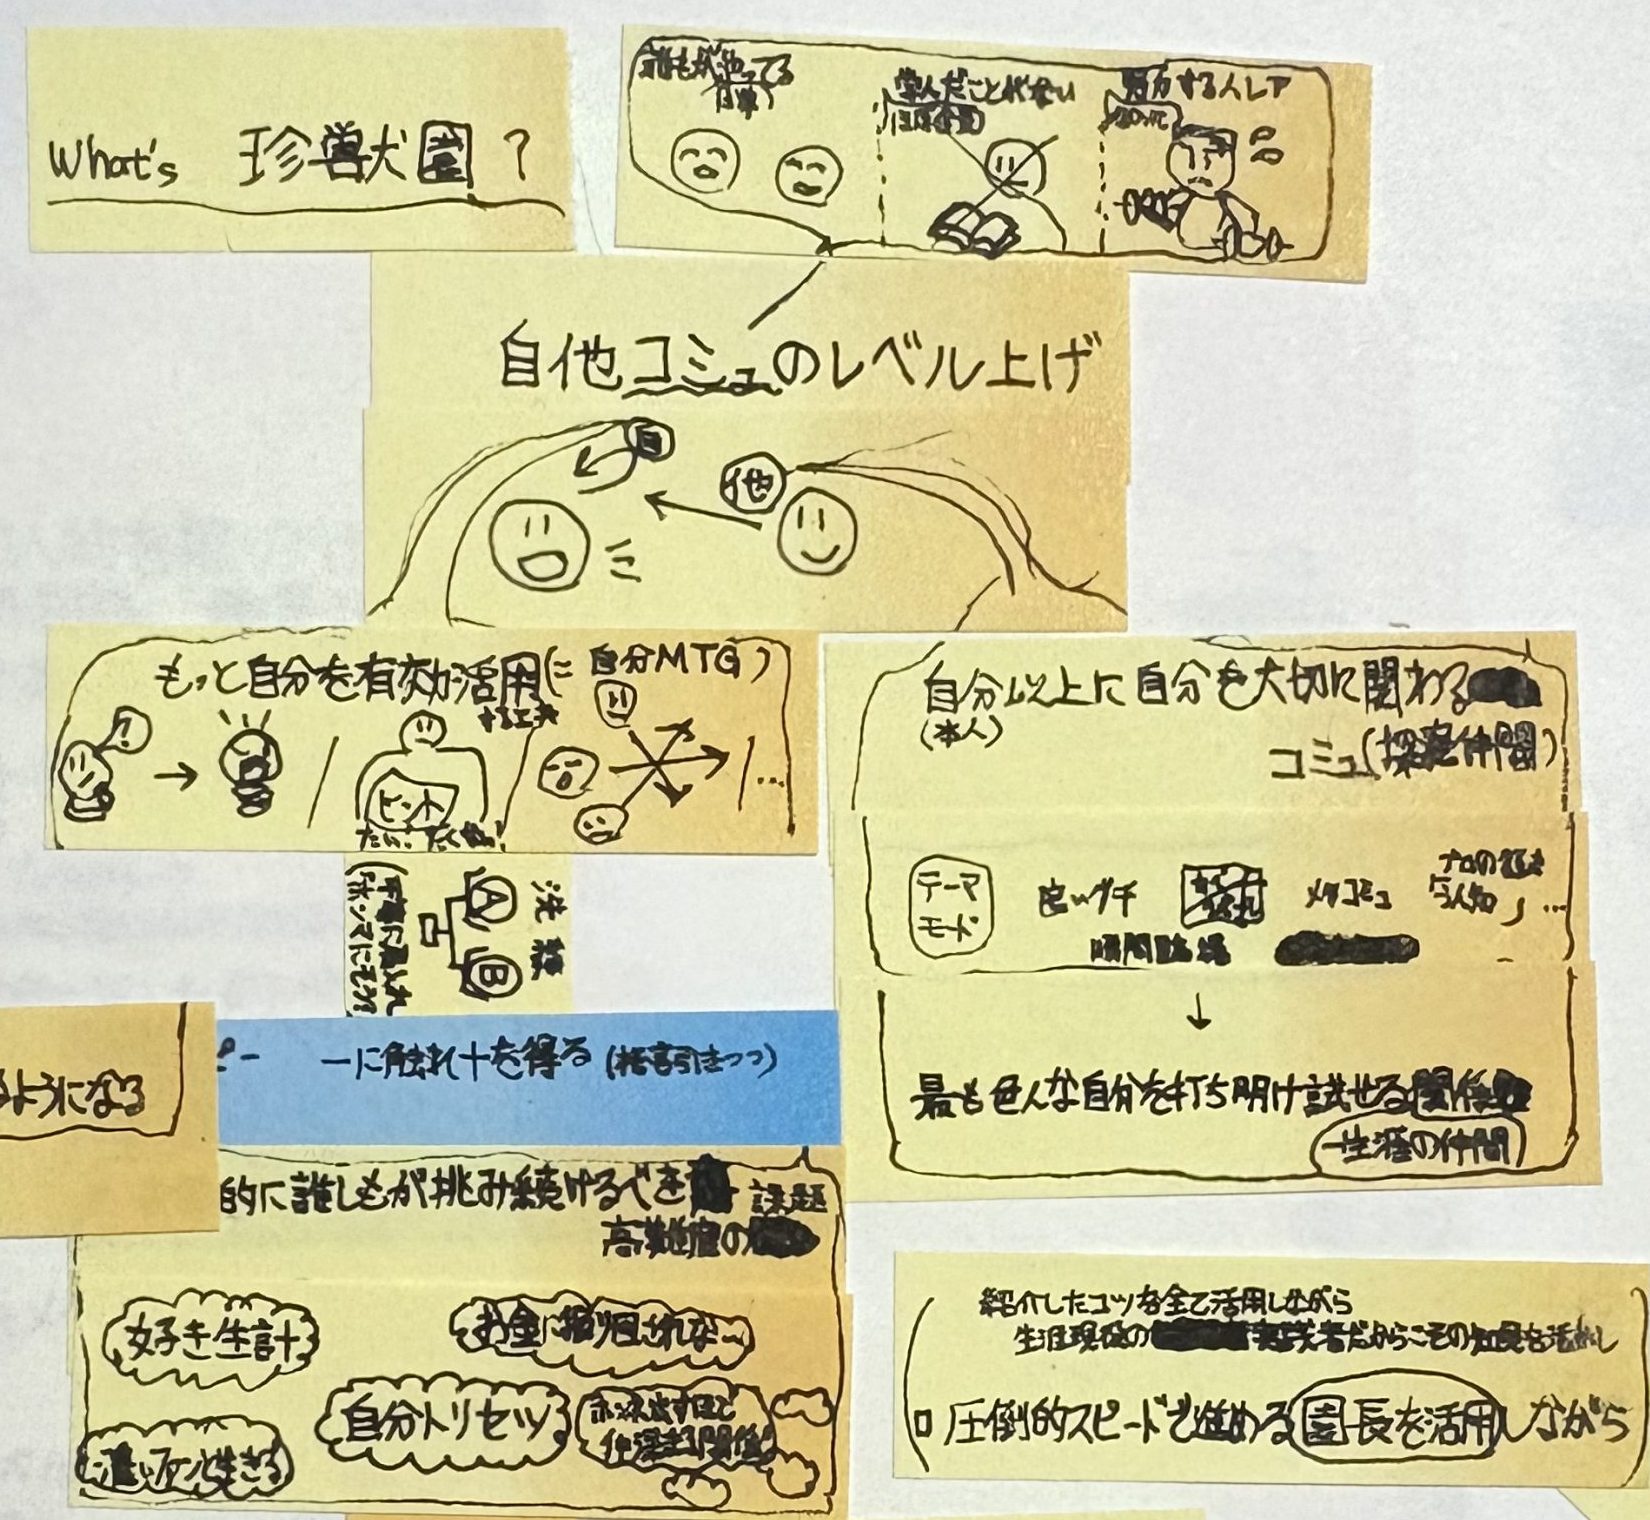 What's 珍獣園?
誰もがやってる
学んだことがない
努力する人レア
自他コミュのレベル上げ
自
他
もっと自分を有効活用(= 自分MTG)
する工夫
ヒント
自分以上に自分を大切に関わる
(本人)
コミュ(探究仲間)
テーマ
モード
良いグチ
メタコミュ
プロの
...
洗練
A
B
ーに触れ+を得る
ようになる
最も色んな自分を打ち明け試せる関係
一生涯の仲間
的に誰しもが挑み続けるべき 課題
高難度の
好き生計
お金に振り回されない
自分トリセツ
紹介したコツを全て活用しながら
生涯現役の 実践者だからこその知見を活かし
圧倒的スピードで進める園長を活用しながら